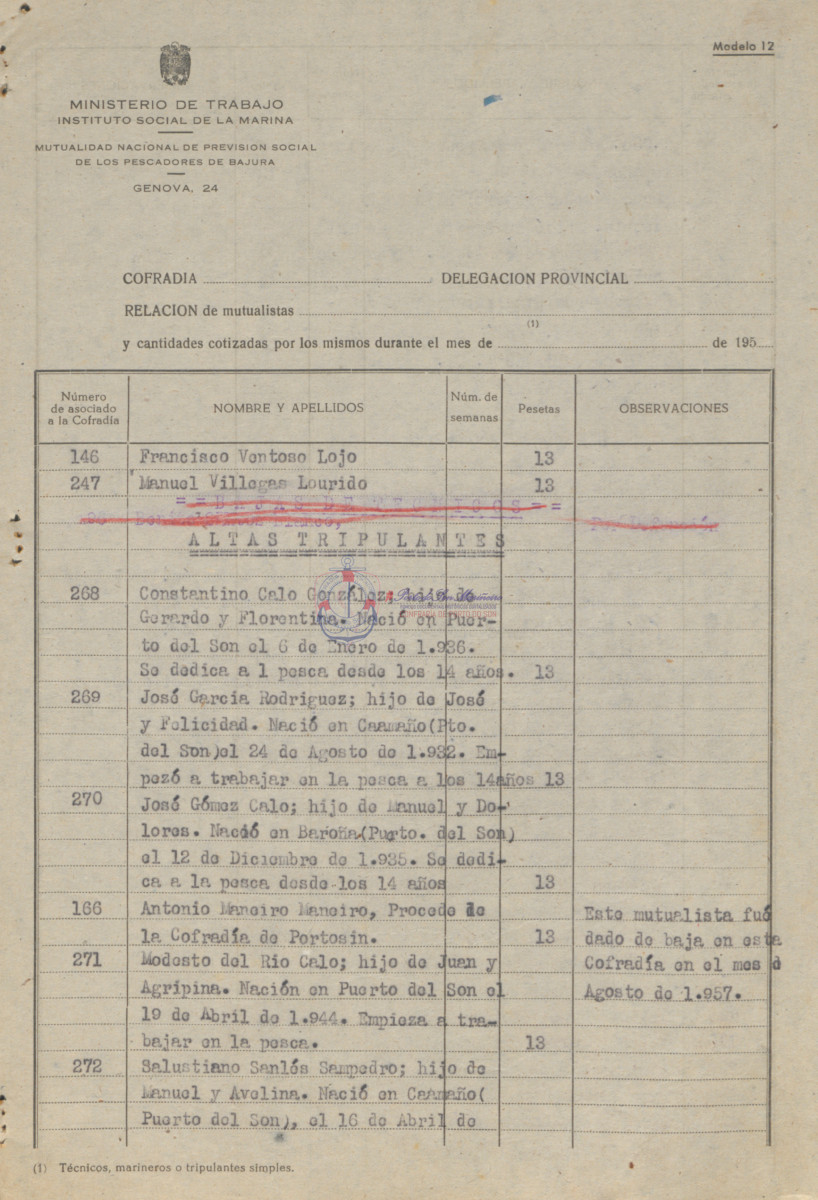 Modelo 12
MINISTERIO DE TRABAJO
INSTITUTO SOCIAL DE LA MARINA
MUTUALIDAD NACIONAL DE PREVISION SOCIAL
DE LOS PESCADORES DE BAJURA
GENOVA, 24
COFRADIA DELEGACION PROVINCIAL
RELACION de mutualistas
(1)
y cantidades cotizadas por los mismos durante el mes de de 195
Número de asociado a la Cofradía NOMBRE Y APELLIDOS Núm. de semanas Pesetas OBSERVACIONES
146 Francisco Ventoso Lojo 13
247 Manuel Villegas Lourido 13
= = B A J A S D E T E C N I C O S = =
A L T A S T R I P U L A N T E S
268 Constantino Calo González; hijo de
Gerardo y Florentina. Nació en Puer-
to del Son el 6 de Enero de 1.936.
Se dedica a l pesca desde los 14 años. 13
269 José Garcia Rodriguez; hijo de José
y Felicidad. Nació en Caamaño(Pto.
del Son)el 24 de Agosto de 1.932. Em-
pezó a trabajar en la pesca a los 14años 13
270 José Gómez Calo; hijo de Manuel y Do-
lores. Nació en Baroña(Purto. del Son)
el 12 de Diciembre de 1.935. Se dedi-
ca a la pesca desde-los 14 años 13
166 Antonio Maneiro Maneiro, Procede de Este mutualista fué
la Cofradía de Portosin. 13 dado de baja en esta
271 Modesto del Rio Calo; hijo de Juan y Cofradía en el mes d
Agripina. Nación en Puerto del Son el Agosto de 1.957.
19 de Abril de 1.944. Empieza a tra-
bajar en la pesca. 13
272 Salustiano Sanlés Sampedro; hijo de
Manuel y Avelina. Nació en Caamaño(
Puerto del Son), el 16 de Abril de
(1) Técnicos, marineros o tripulantes simples.